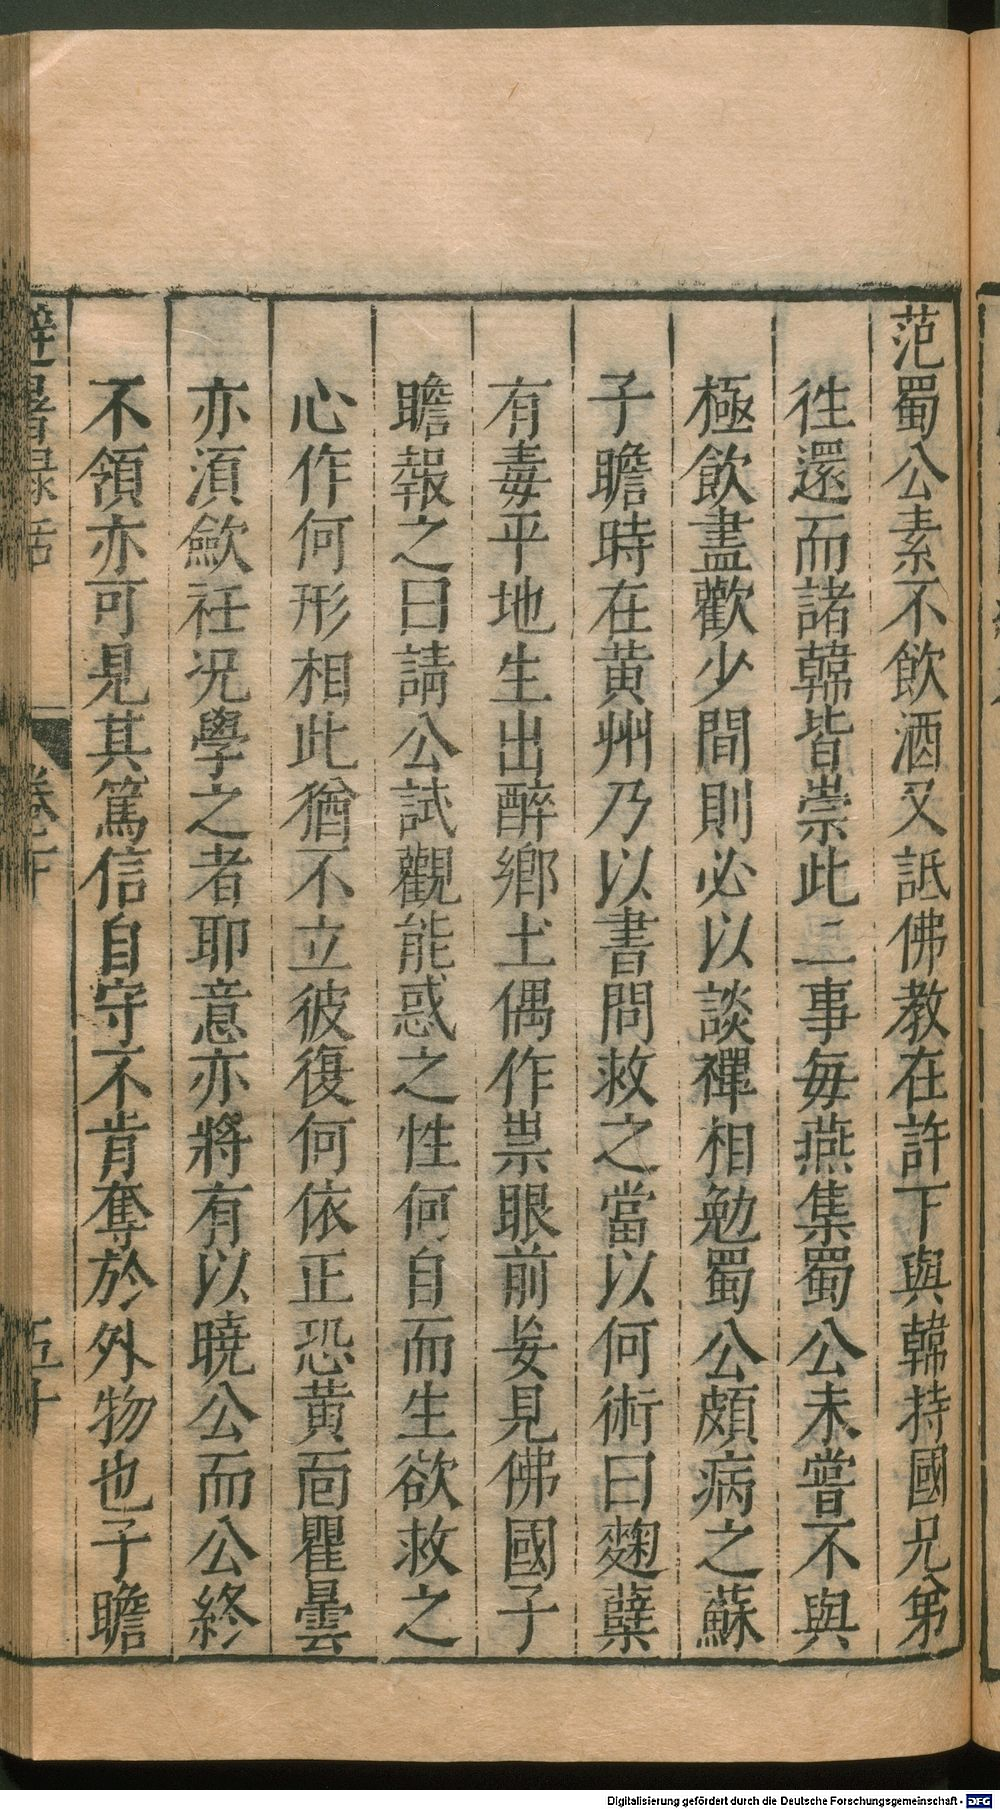 范蜀公素不飲酒又詆佛教在許下與韓持國兄弟
徃還而諸韓皆崇此二事每燕集蜀公未嘗不與
極飲盡歡少間則必以談禪相勉蜀公頗病之蘇
子瞻時在黃州乃以書問救之當以何術曰麴糵
有毒平地生出醉鄉土偶作祟眼前妄見佛國子
瞻報之曰請公試觀能惑之性何自而生欲救之
心作何形相此猶不立彼復何依正恐黃面瞿曇
亦湏斂衽况學之者耶意亦將有以曉公而公終
不領亦可見其篤信自守不肯奪於外物也子瞻
避暑錄話 卷下 五十
Digitalisierung gefördert durch die Deutsche Forschungsgemeinschaft - DFG